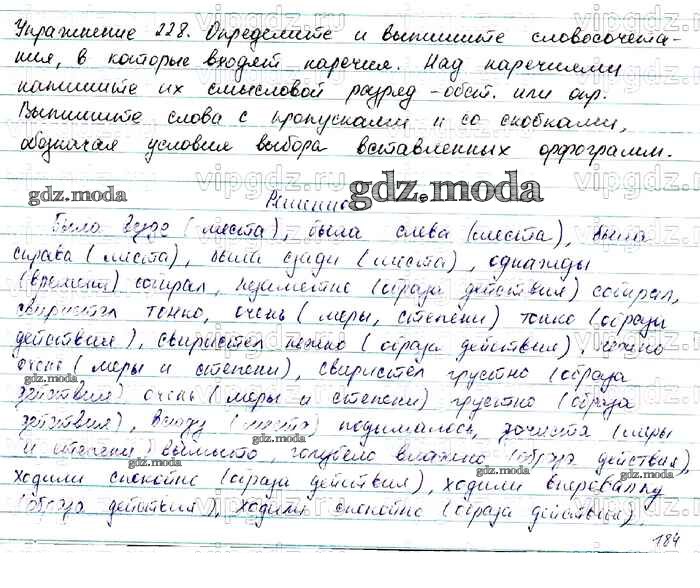 Упражнение 228. Определите и выпишите словосочета-
ния, в которые входят наречия. Над наречиями
напишите их смысловой разряд - обст. или опр.
Выпишите слова с пропусками и со скобками,
обозначая условия выбора вставленных орфограмм.
gdz.moda
gdz.moda
Решение
Была везде (места), была слева (места), была
справа (места), была сзади (места), однажды
(времени) собирал, незаметно (образа действия) собирал,
свиристел тонко, очень (меры, степени) тонко (образа
действия), свиристел нежно (образа действия), нежно
очень (меры и степени), свиристел грустно (образа
gdz.moda
действия) очень (меры и степени) грустно (образа
действия), (места) поднималось, (меры
gdz.moda
и степени) вымыто голубело влажно (образа действия),
gdz.moda
ходили спокойно (образа действия), ходили вперевалку
(образа действия), ходили спокойно (образа действия).
gdz.moda
gdz.moda
184
vipgdz.ru